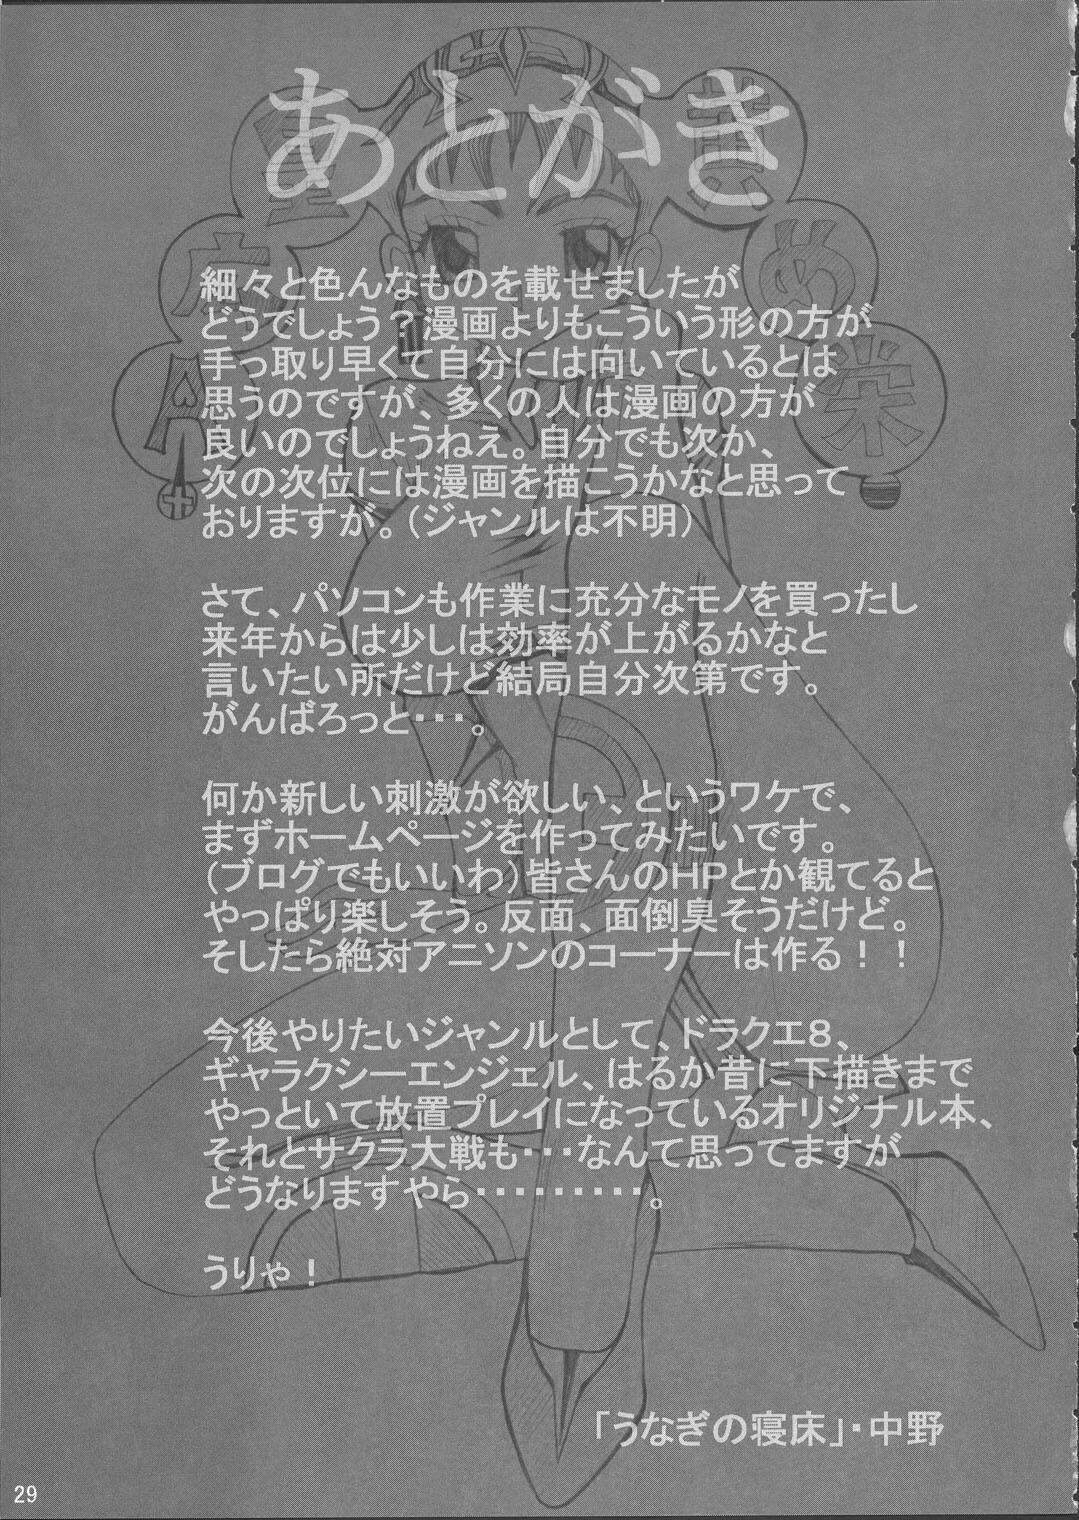 あとがき
細々と色んなものを載せましたが
どうでしょう？漫画よりもこういう形の方が
手っ取り早くて自分には向いているとは
思うのですが、多くの人は漫画の方が
良いのでしょうねえ。自分でも次か、
次の次位には漫画を描こうかなと思って
おりますが。（ジャンルは不明）
さて、パソコンも作業に充分なモノを買ったし
来年からは少しは効率が上がるかなと
言いたい所だけど結局自分次第です。
がんばろっと・・・。
何か新しい刺激が欲しい、というワケで、
まずホームページを作ってみたいです。
（ブログでもいいわ）皆さんのＨＰとか観てると
やっぱり楽しそう。反面、面倒臭そうだけど。
そしたら絶対アニソンのコーナーは作る！！
今後やりたいジャンルとして、ドラクエ８、
ギャラクシーエンジェル、はるか昔に下描きまで
やっといて放置プレイになっているオリジナル本、
それとサクラ大戦も・・・なんて思ってますが
どうなりますやら・・・・・・・・・。
うりゃ！
「うなぎの寝床」・中野
29